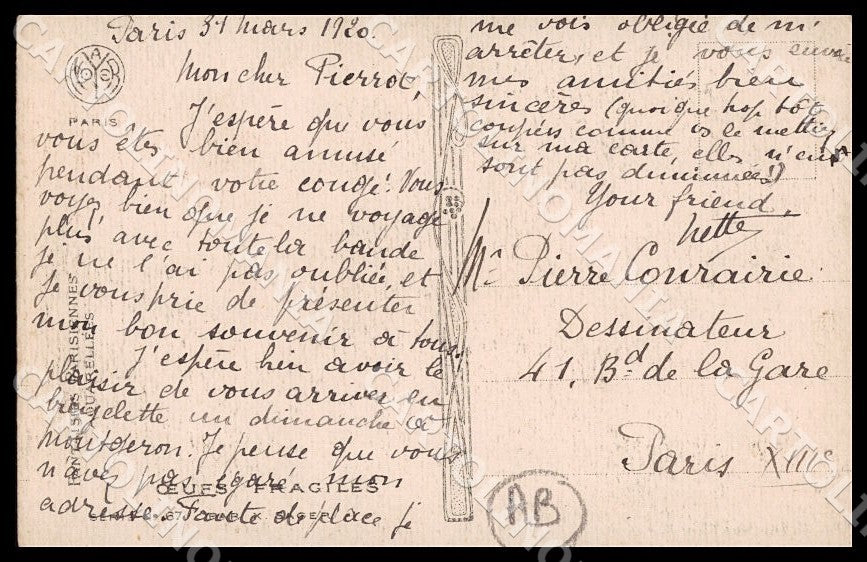 Paris 31 mars 1920.
Mon cher Pierrot,
J'espère que vous
vous êtes bien amusé
pendant votre congé. Vous
voyez bien que je ne voyage
plus avec toute la bande
je ne l'ai pas oubliée, et
je vous prie de présenter
mon bon souvenir à tous.
J'espère bien avoir le
plaisir de vous arriver en
bicyclette un dimanche à
Montgeron. Je pense que vous
n'avez pas égaré mon
adresse. Faute de place je
me vois obligée de m'
arrêter, et je vous envoie
mes amitiés bien
sincères (quoique trop tôt
coupées comme vs le mettiez
sur ma carte, elles n'en
sont pas diminuées!)
Your friend,
Nette
Mr Pierre Courairie
Dessinateur
41, Bd de la Gare
Paris XIIIe
PARIS
FANTAISIES PARISIENNES
ŒUFS FRAGILES
AB
CARTOLINOMANIA